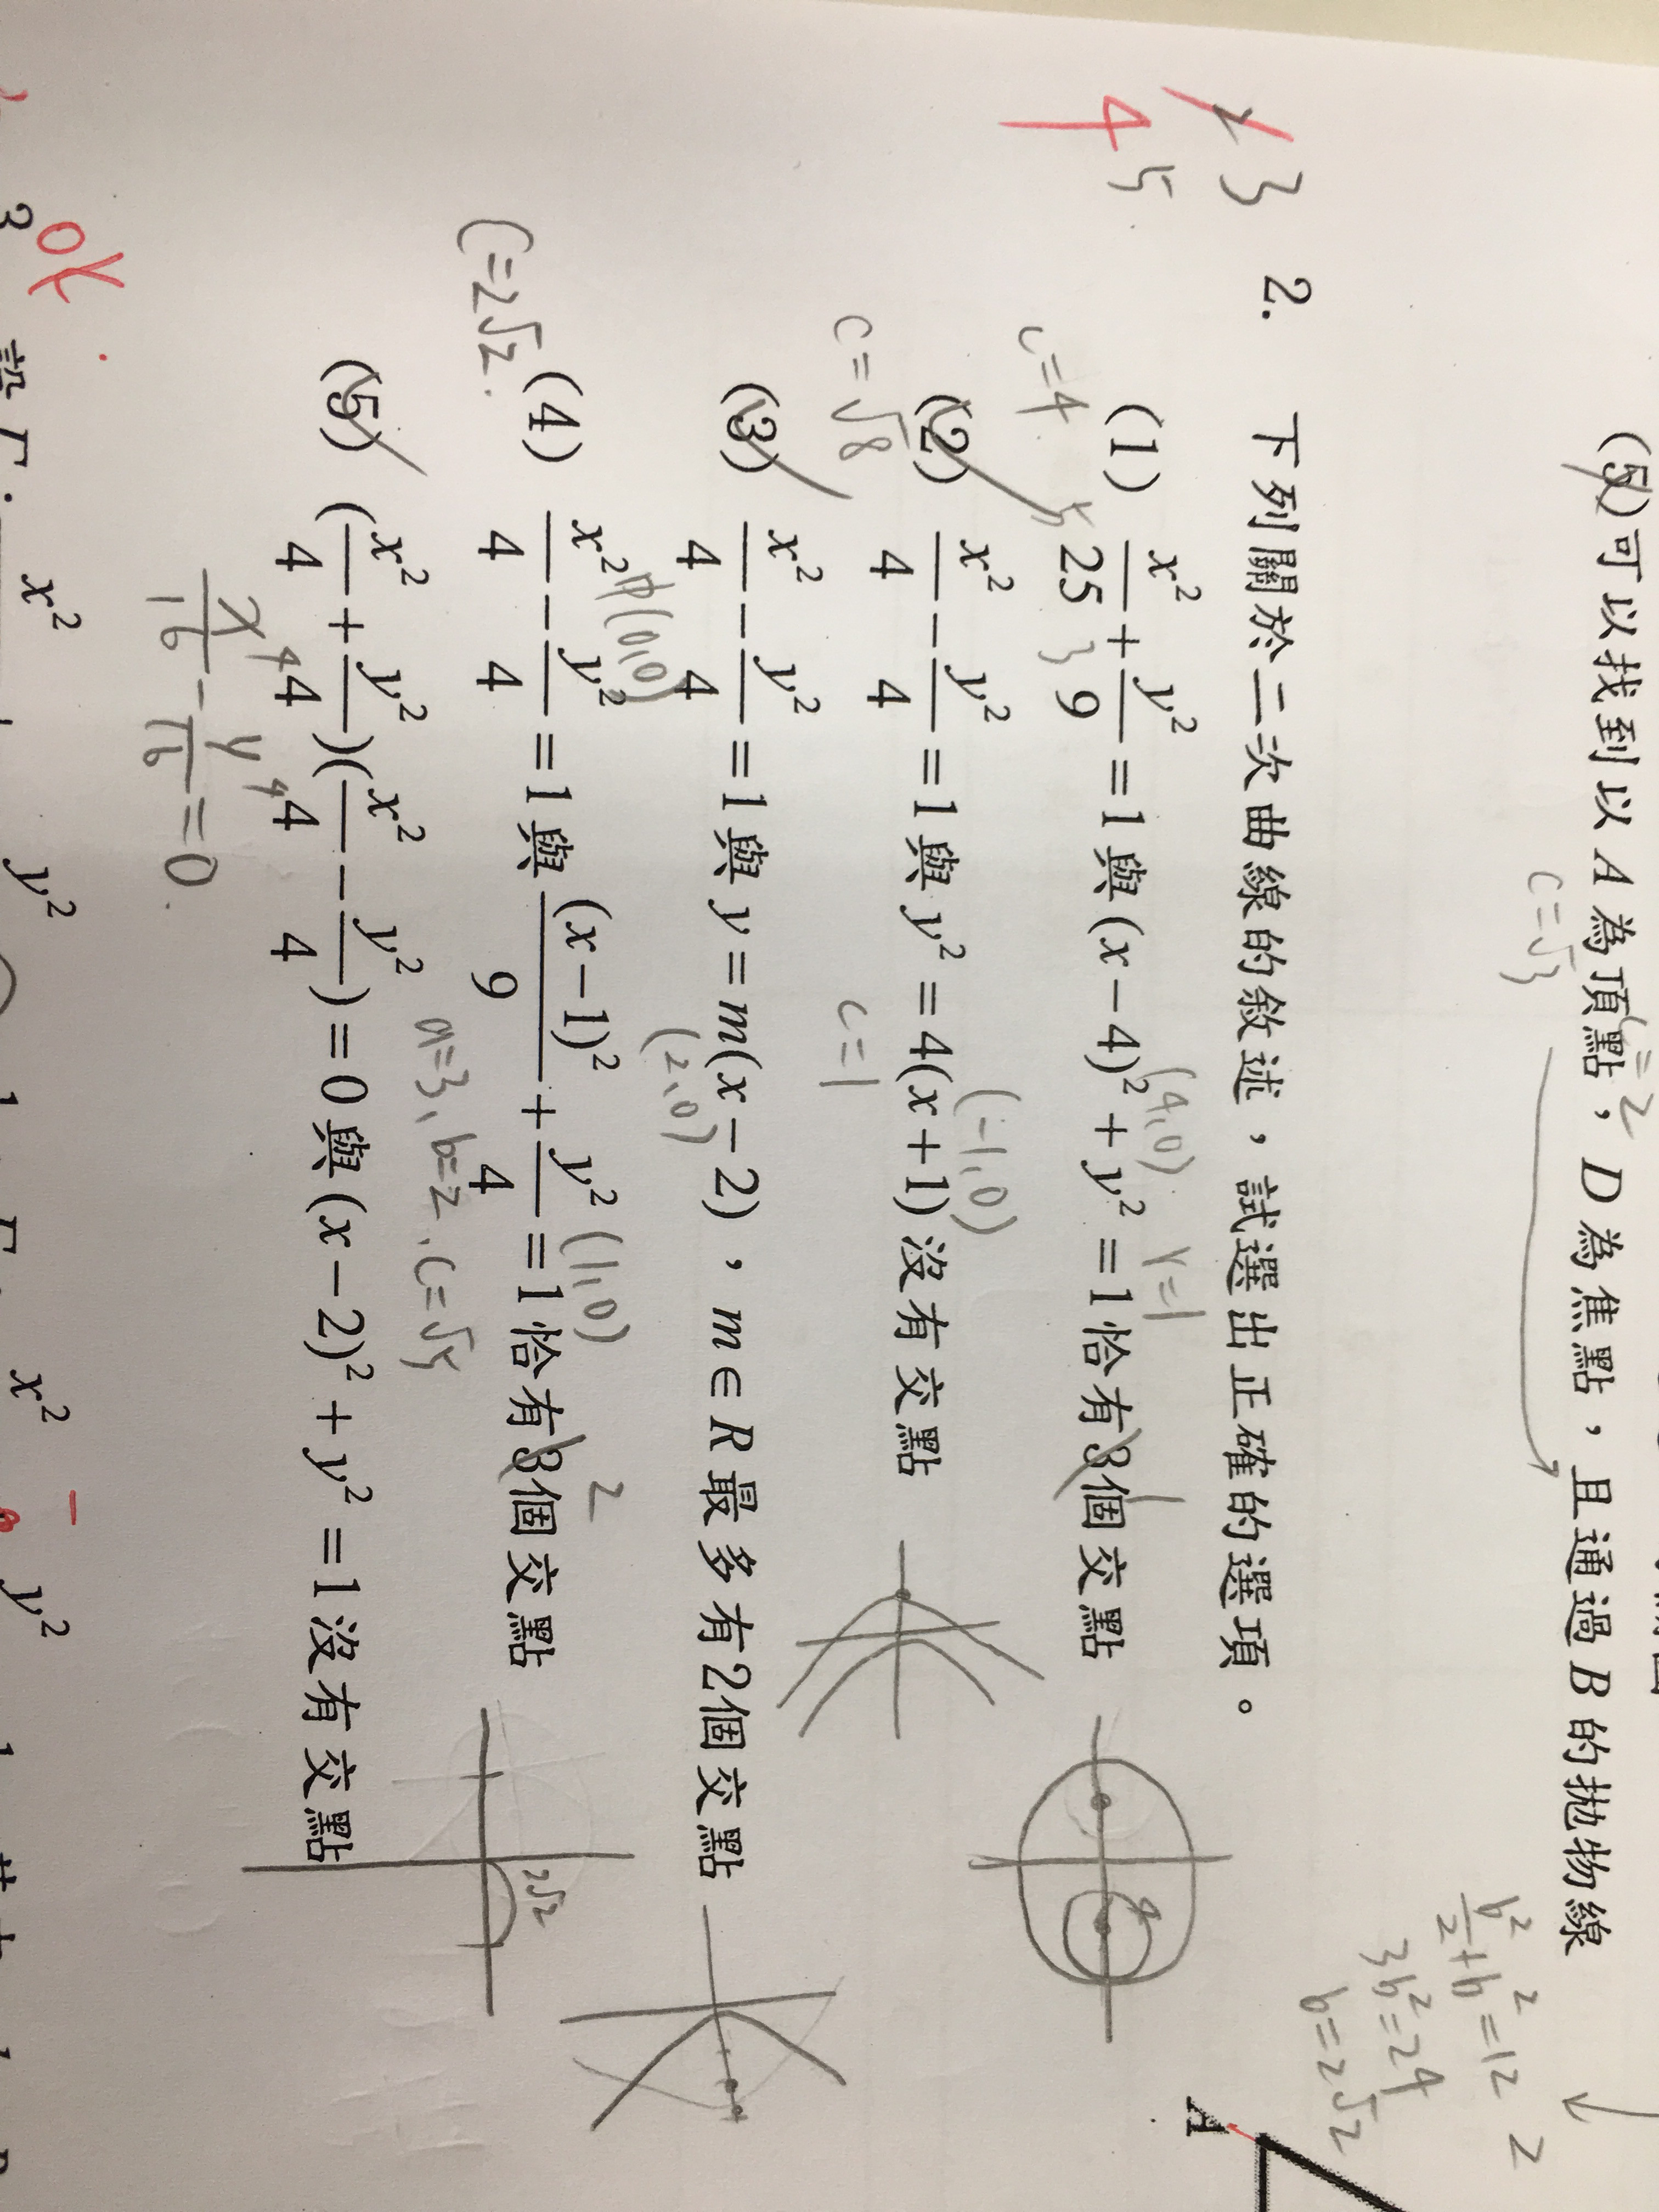 (5)可以找到以 A 為頂點，D 為焦點，且通過 B 的拋物線
c=√3
c=2
b²/2+b²=12
3b²=24
b=2√2
2
2 3
4 5
2. 下列關於二次曲線的敘述，試選出正確的選項。
(4,0) r=1
(1) x²/25+y²/9=1與(x−4)²+y²=1恰有3個交點
c=4 5 3 1
4
(−1,0)
(2) x²/4−y²/4=1與y²=4(x+1)沒有交點
c=√8 c=1
(3) x²/4−y²/4=1與y=m(x−2)，m∈R最多有2個交點
(2,0)
中(0,0) (1,0) 2
(4) x²/4−y²/4=1與(x−1)²/9+y²/4=1恰有3個交點
C=2√2. a=3,b=2,c=√5
2√2
(5) (x²/4+y²/4)(x²/4−y²/4)=0與(x−2)²+y²=1沒有交點
x⁴/16−y⁴/16=0.
A
OK
3 設Γ: x² y² x² y²